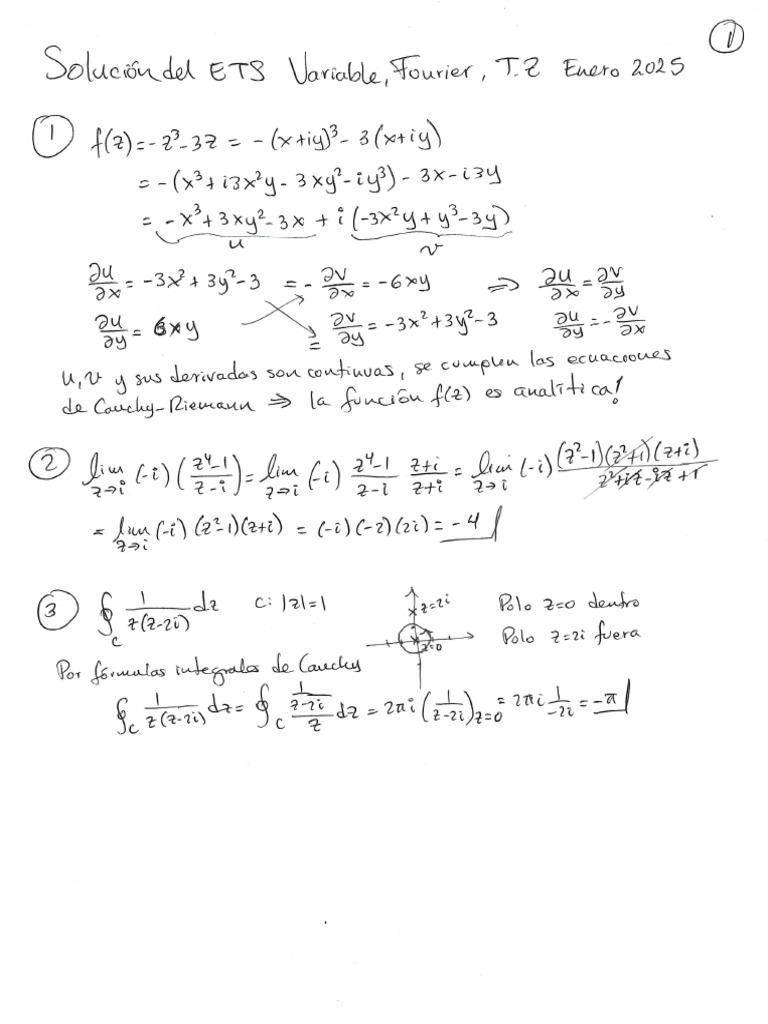 1
Solución del ETS Variable, Fourier, T.Z Enero 2025
1 f(z)=-z³-3z = -(x+iy)³-3(x+iy)
= -(x³+i3x²y-3xy²-iy³)-3x-i3y
= -x³+3xy²-3x + i(-3x²y+y³-3y)
u v
∂u/∂x = -3x²+3y²-3 = -∂v/∂x = -6xy ⇒ ∂u/∂x = ∂v/∂y
∂u/∂y = 6xy = ∂v/∂y = -3x²+3y²-3 ∂u/∂y = -∂v/∂x
u,v y sus derivadas son continuas, se cumplen las ecuaciones
de Cauchy-Riemann ⇒ la función f(z) es analítica!
2 lim z→i (-i)(z⁴-1/z-i) = lim z→i (-i) z⁴-1/z-i z+i/z+i = lim z→i (-i) (z²-1)(z²+1)(z+i)/z²+iz-iz+1
= lim z→i (-i)(z²-1)(z+i) = (-i)(-2)(2i) = -4
3 ∮c 1/z(z-2i) dz c: |z|=1 z=2i z=0 Polo z=0 dentro
Polo z=2i fuera
Por fórmulas integrales de Cauchy
∮c 1/z(z-2i) dz = ∮c 1/z-2i/z dz = 2πi (1/z-2i)z=0 = 2πi 1/-2i = -π